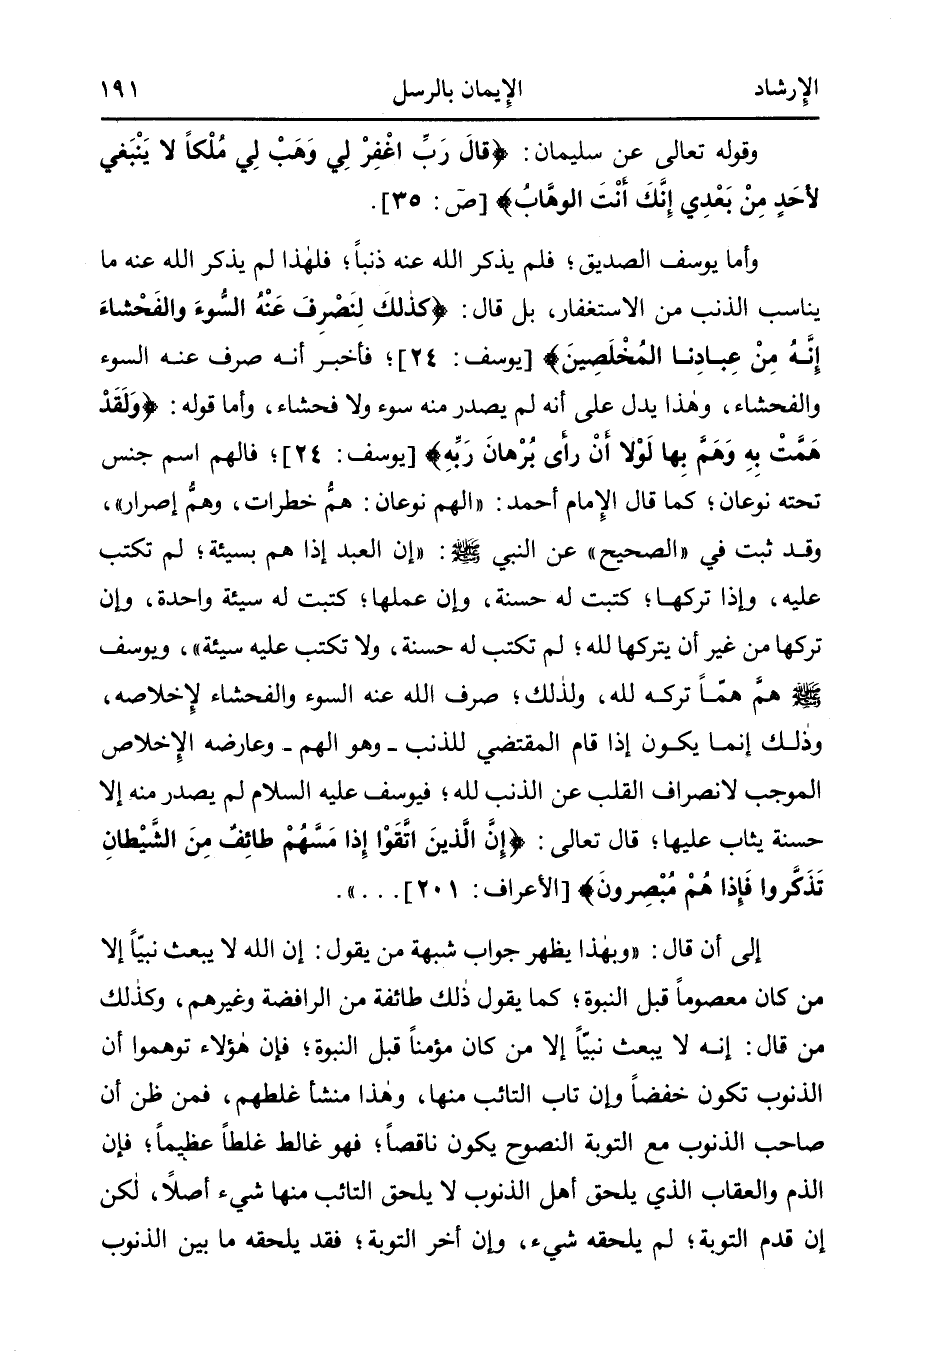 الإرشاد الإيمان بالرسل ١٩١
وقوله تعالى عن سليمان: ﴿قالَ رَبِّ اغْفِرْ لِي وَهَبْ لِي مُلْكاً لا يَنْبَغي
لأحَدٍ مِنْ بَعْدِي إِنَّكَ أَنْتَ الوهَّابُ﴾ [صۤ: ٣٥].
وأما يوسف الصديق؛ فلم يذكر الله عنه ذنباً؛ فلهٰذا لم يذكر الله عنه ما
يناسب الذنب من الاستغفار، بل قال: ﴿كذٰلكَ لِنَصْرِفَ عَنْهُ السُّوءَ والفَحْشاءَ
إِنَّهُ مِنْ عِبادِنا المُخْلَصِينَ﴾ [يوسف: ٢٤]؛ فأخبر أنه صرف عنه السوء
والفحشاء، وهٰذا يدل على أنه لم يصدر منه سوء ولا فحشاء، وأما قوله: ﴿وَلَقَدْ
هَمَّتْ بِهِ وَهَمَّ بِها لَوْلا أَنْ رأى بُرْهانَ رَبِّهِ﴾ [يوسف: ٢٤]؛ فالهم اسم جنس
تحته نوعان؛ كما قال الإمام أحمد: «الهم نوعان: همُّ خطرات، وهمُّ إصرار»،
وقد ثبت في «الصحيح» عن النبي ﷺ: «إن العبد إذا هم بسيئة؛ لم تكتب
عليه، وإذا تركها؛ كتبت له حسنة، وإن عملها؛ كتبت له سيئة واحدة، وإن
تركها من غير أن يتركها لله؛ لم تكتب له حسنة، ولا تكتب عليه سيئة»، ويوسف
ﷺ همَّ همّاً تركه لله، ولذٰلك؛ صرف الله عنه السوء والفحشاء لإخلاصه،
وذٰلك إنما يكون إذا قام المقتضي للذنب ـ وهو الهم ـ وعارضه الإخلاص
الموجب لانصراف القلب عن الذنب لله؛ فيوسف عليه السلام لم يصدر منه إلا
حسنة يثاب عليها؛ قال تعالى: ﴿إِنَّ الَّذينَ اتَّقَوْا إِذا مَسَّهُمْ طائِفٌ مِنَ الشَّيْطانِ
تَذَكَّروا فَإِذا هُمْ مُبْصِرونَ﴾ [الأعراف: ٢٠١]...».
إلى أن قال: «وبهٰذا يظهر جواب شبهة من يقول: إن الله لا يبعث نبيّاً إلا
من كان معصوماً قبل النبوة؛ كما يقول ذٰلك طائفة من الرافضة وغيرهم، وكذٰلك
من قال: إنه لا يبعث نبيّاً إلا من كان مؤمناً قبل النبوة؛ فإن هٰؤلاء توهموا أن
الذنوب تكون خفضاً وإن تاب التائب منها، وهٰذا منشأ غلطهم، فمن ظن أن
صاحب الذنوب مع التوبة النصوح يكون ناقصاً؛ فهو غالط غلطاً عظيماً؛ فإن
الذم والعقاب الذي يلحق أهل الذنوب لا يلحق التائب منها شيء أصلاً، لٰكن
إن قدم التوبة؛ لم يلحقه شيء، وإن أخر التوبة؛ فقد يلحقه ما بين الذنوب